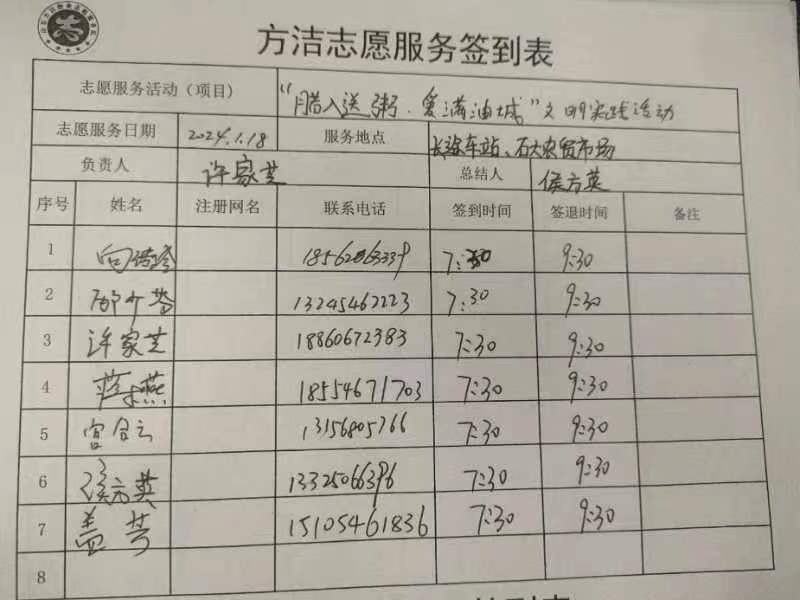 方洁志愿服务签到表
志愿服务活动（项目） “腊八送粥．爱满油城”文明实践活动
志愿服务日期 2024.1.18 服务地点 长途车站、石大农贸市场
负责人 许家芝 总结人 侯方英
序号 姓名 注册网名 联系电话 签到时间 签退时间 备注
1 7:30 9:30
2 13245462223 7:30 9:30
3 许家芝 18860672383 7:30 9:30
4 燕 18554671703 7:30 9:30
5 宫 13156805766 7:30 9:30
6 侯方英 13325066396 7:30 9:30
7 盖芳 15105461836 7:30 9:30
8